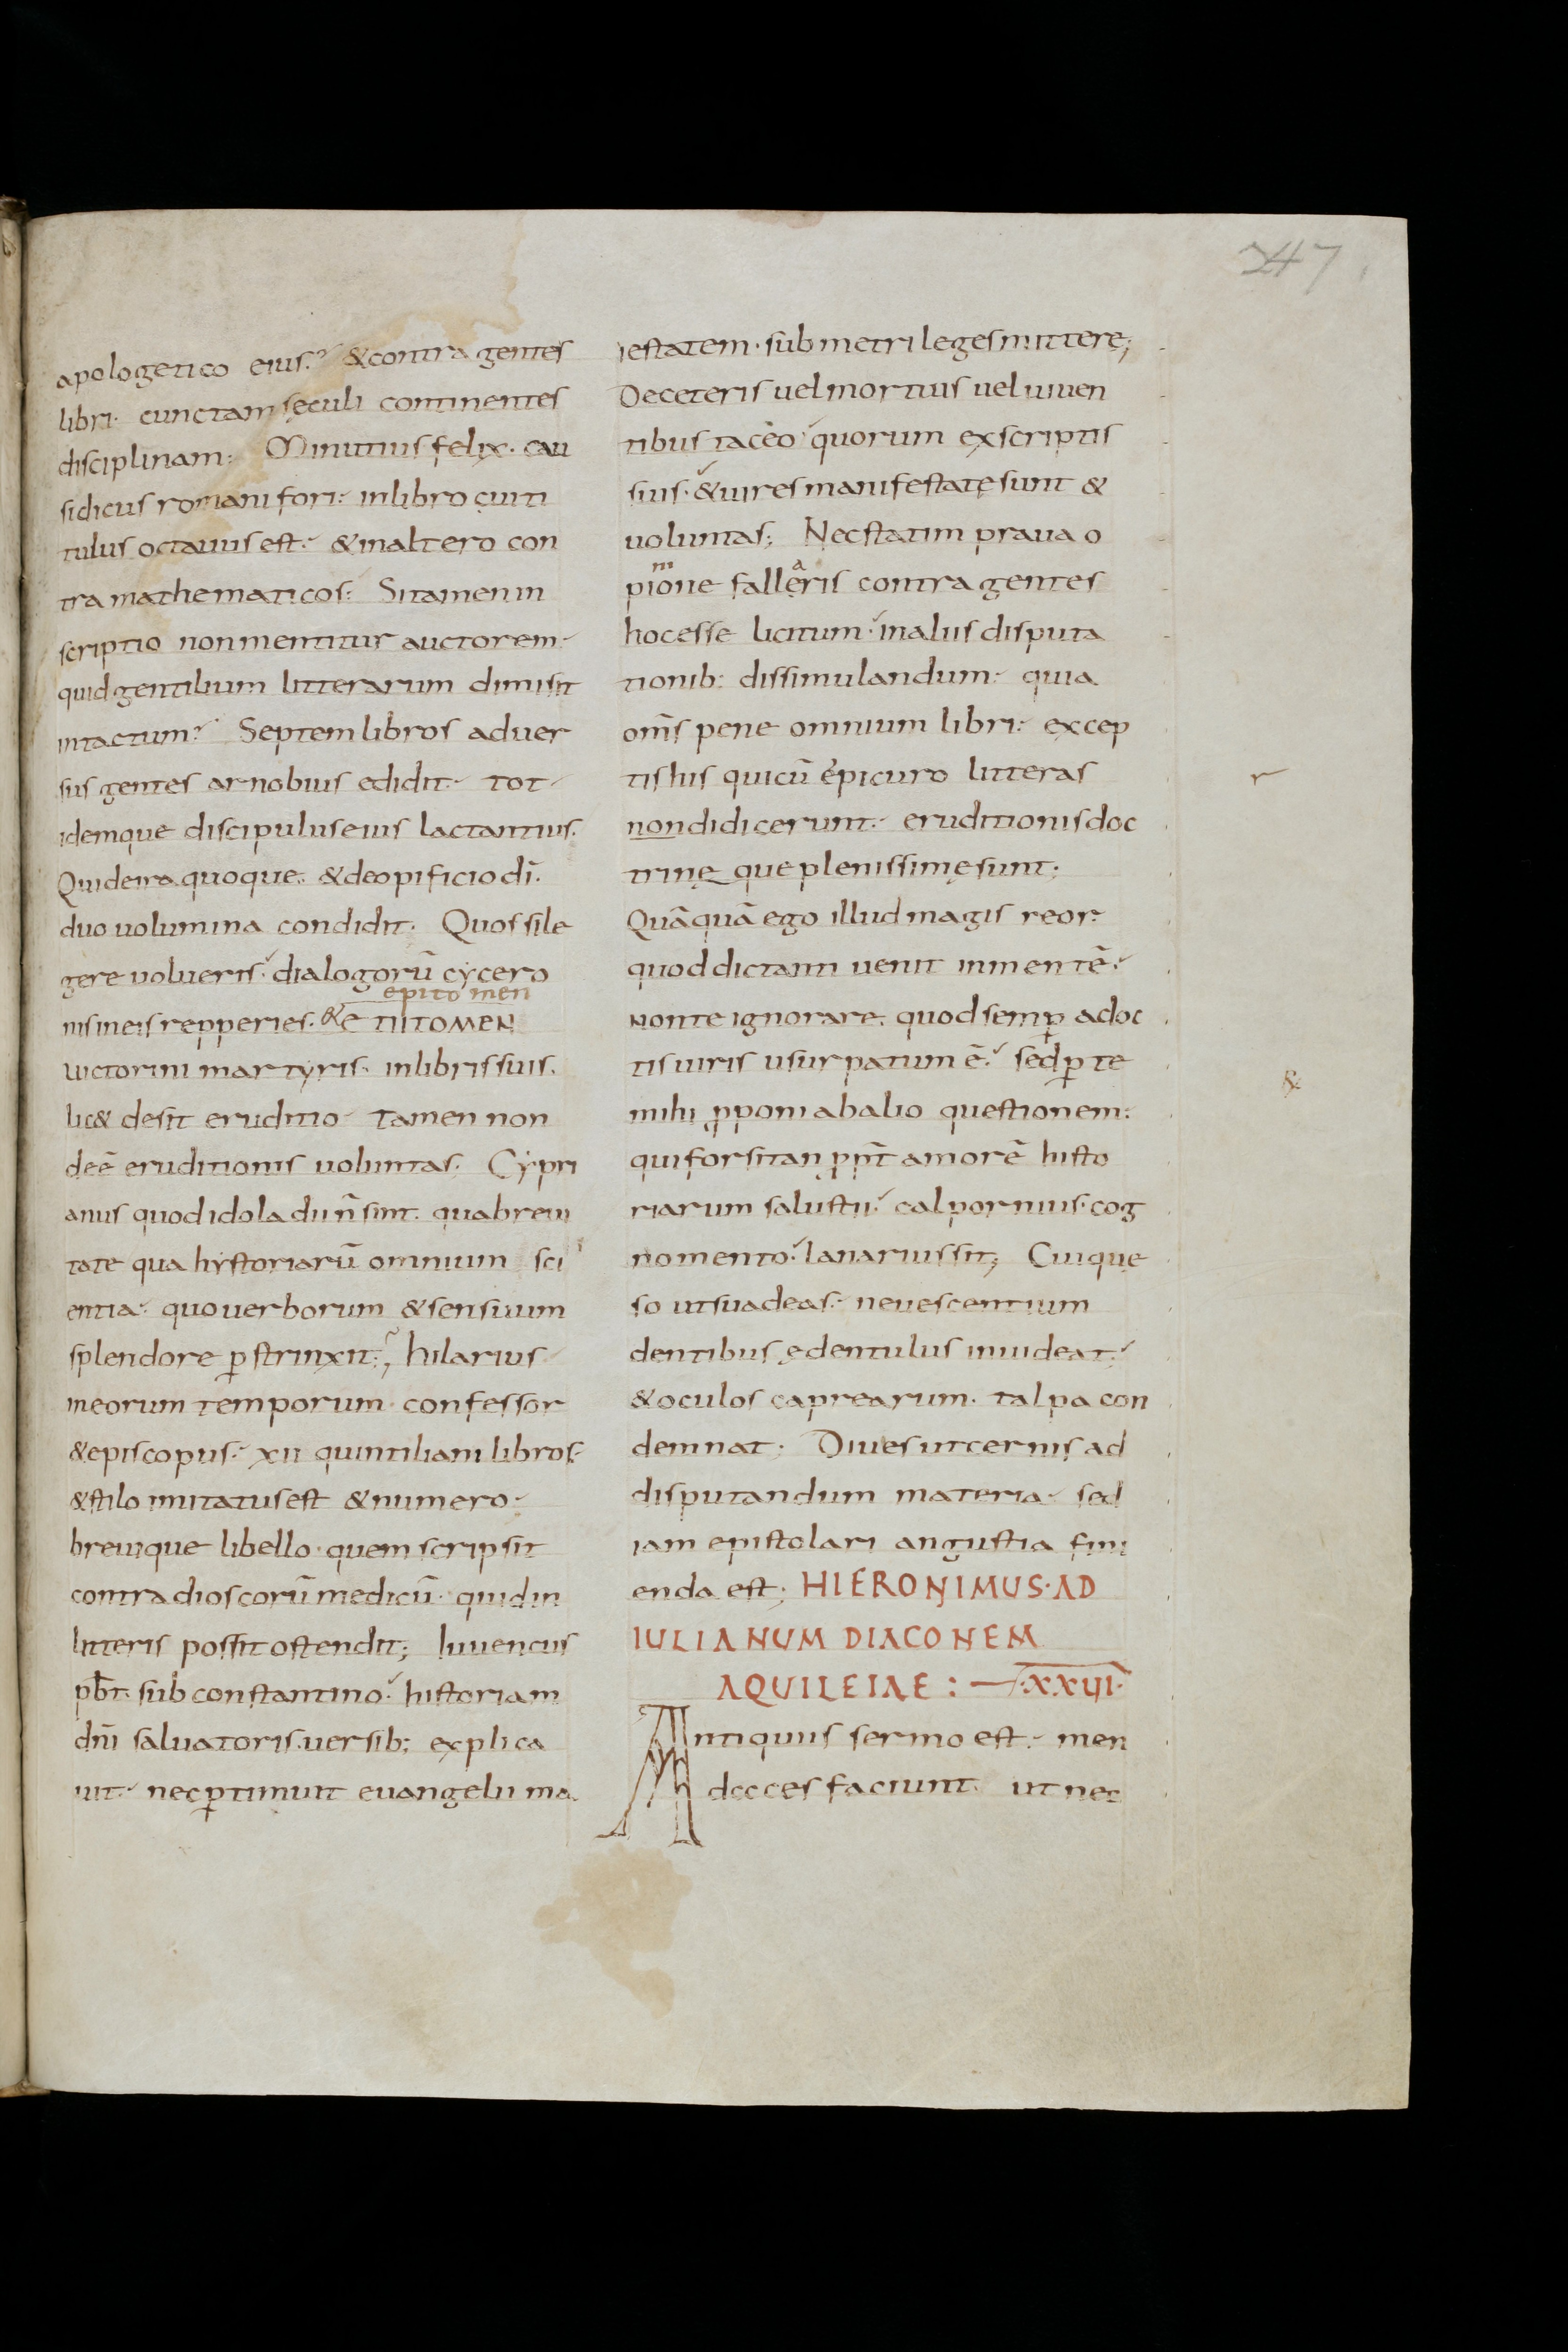 247
apologetico eius? & contra gentes
libri· cunctam sęculi continentes
disciplinam: Minutius felix· cau
sidicus romani fori: in libro cui ti
tulus octavus est: & in altero con
tra mathematicos: Si tamen in
scriptio non mentitur auctorem·
quid gentilium litterarum dimisit
intactum? Septem libros aduer
sus gentes arnobius edidit· tot
idemque discipulus eius lactantius·
Qui de ira quoque· & de opificio dī·
duo uolumina condidit· Quos si le
gere uolueris· dialogorū cycero
epitomen
nis in eis repperies· & ΕΠΙΤΟΜΕΝ
uictorini martyris· in libris suis·
lic& desit eruditio· tamen non
deē eruditionis uoluntas· Cypri
anus quod idola dii n̄ sint· qua breui
tate qua hystoriarū omnium sci
entia· quo uerborum & sensuum
splendore ꝑstrinxit; hilarius
meorum temporum· confessor
& episcopus· xii quintiliani libros·
& stilo imitatus est & numero·
breuique libello· quem scripsit
contra dioscorū medicū· quid in
litteris possit ostendit; Iuuencus
pb̄r· sub constantino· historiam
dn̄i saluatoris· uersib; explica
uit· nec ꝑtimuit euangelii ma
iestatem· sub metri leges mittere;
De ceteris uel mortuis uel uiuen
tibus taceo· quorum ex scriptis
suis· & uires manifestatę sunt &
uoluntas; Nec statim praua o
m a
pione falleris contra gentes
hoc esse licitum· in aliis disputa
tionib: dissimulandum· quia
om̄s pene omnium libri: excep
tis his qui cū epicuro litteras
r
non didicerunt· eruditionis doc
trinę que plenissimę sunt;
Quāquā ego illud magis reor·
quod dictanti uenit in mentē·
non te ignorare· quod semꝑ a doc
tis uiris usurpatum ē· sed ꝑ te
&
mihi ꝓponi ab alio questionem:
qui forsitan ꝓpt̄ amorē histo
riarum salustii· calpornius· cog
nomento· lanarius sit; Cui que
so ut suadeas· ne uescentium
dentibus ędentulus inuideat·
& oculos caprearum· talpa con
demnat; Diues ut cernis ad
disputandum materia· sed
iam epistolari angustia fini
enda est; HIERONIMUS· AD
IULIANUM DIACONEM
AQUILEIAE : — ·XXVII·
Antiquus sermo est· men
daces faciunt· ut nec